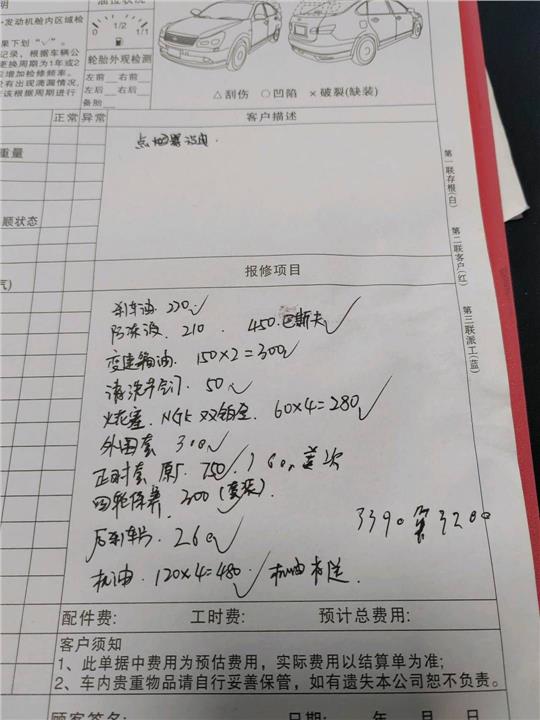 明
油位状况
·发动机舱内区域检
0 1/2 1/1
果下划"✓"。
记录,根据车辆公
更换周期为1年或2
应增加检修频率。
没有出现滴漏情况,
应该根据周期进行
轮胎外观检测
左前 右前
左后 右后
备胎
△刮伤 ○凹陷 ×破裂(缺装)
正常 异常
客户描述
点烟器没电.
重量
顺状态
气)
第一联存根(白) 第二联客户(红) 第三联派工(蓝)
报修项目
刹车油. 220 ✓
防冻液. 210 . 450.巴斯夫 ✓
变速箱油. 150×2=300 ✓
清洗节气门 50 ✓
火花塞. NGK 双铂金. 60×4=280 ✓
外围套 300 ✓
正时套 原厂. 750 ✓
四轮保养. 300 (套装).
后刹车片. 260 ✓
3390 算 3200
机油. 120×4=480 ✓ 机油
配件费: 工时费: 预计总费用:
客户须知
1、此单据中费用为预估费用,实际费用以结算单为准;
2、车内贵重物品请自行妥善保管,如有遗失本公司恕不负责。
顾客签名: 日期: 年 月 日